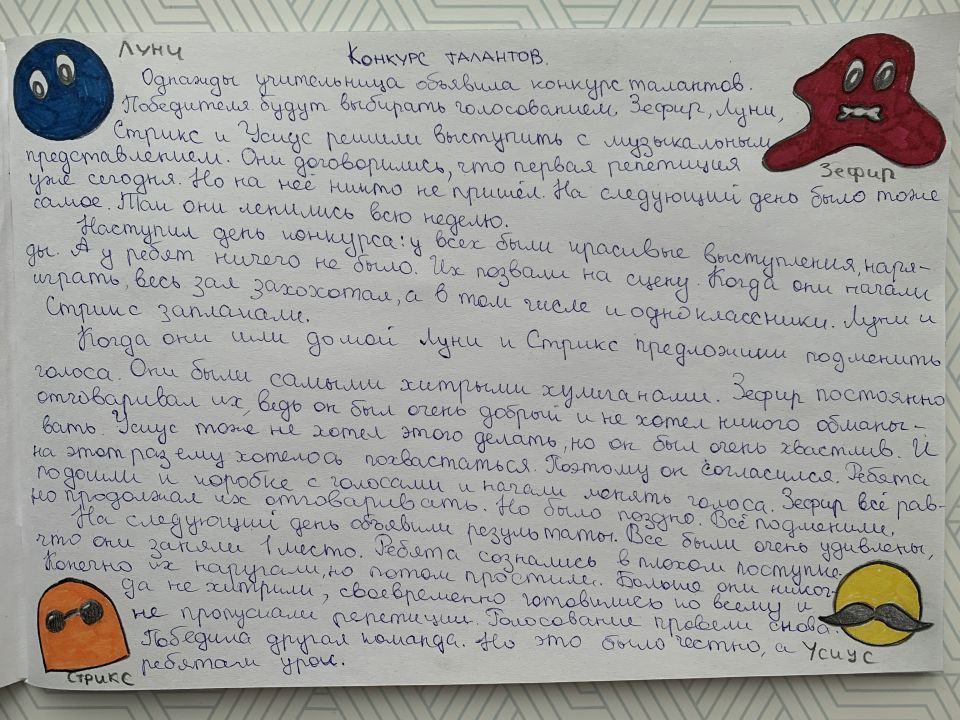 Луни
Конкурс талантов.
Однажды учительница объявила конкурс талантов.
Победителя будут выбирать голосованием, Зефир, Луни,
Стрикс и Усиус решили выступить с музыкальным
представлением. Они договорились, что первая репетиция
уже сегодня. Но на неё никто не пришёл. На следующий день было тоже
самое. Так они ленились всю неделю.
Наступил день конкурса: у всех были красивые выступления, наря-
ды. А у ребят ничего не было. Их позвали на сцену. Когда они начали
играть, весь зал захохотал, а в том числе и одноклассники. Луни и
Стрикс заплакали.
Когда они шли домой Луни и Стрикс предложили подменить
голоса. Они были самыми хитрыми хулиганами. Зефир постоянно
отговаривал их, ведь он был очень добрый и не хотел никого обманы-
вать. Усиус тоже не хотел этого делать, но он был очень хвастлив. И
на этот раз ему хотелось похвастаться. Поэтому он согласился. Ребята
подошли к коробке с голосами и начали менять голоса. Зефир всё рав-
но продолжал их отговаривать. Но было поздно. Всё подменили.
На следующий день объявили результаты. Все были очень удивлены,
что они заняли 1 место. Ребята сознались в плохом поступке.
Конечно их наругали, но потом простили. Больше они никог-
да не хитрили, своевременно готовились ко всему и
не пропускали репетиции. Голосование провели снова.
Победила другая команда. Но это было честно, а
ребятам урок.
Зефир
Стрикс
Усиус